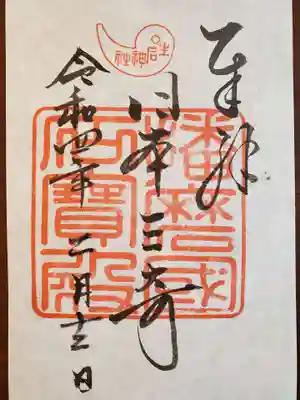 奉拝
生石神社
日本三奇
播磨國
石寶殿
令和四年 二月十三日